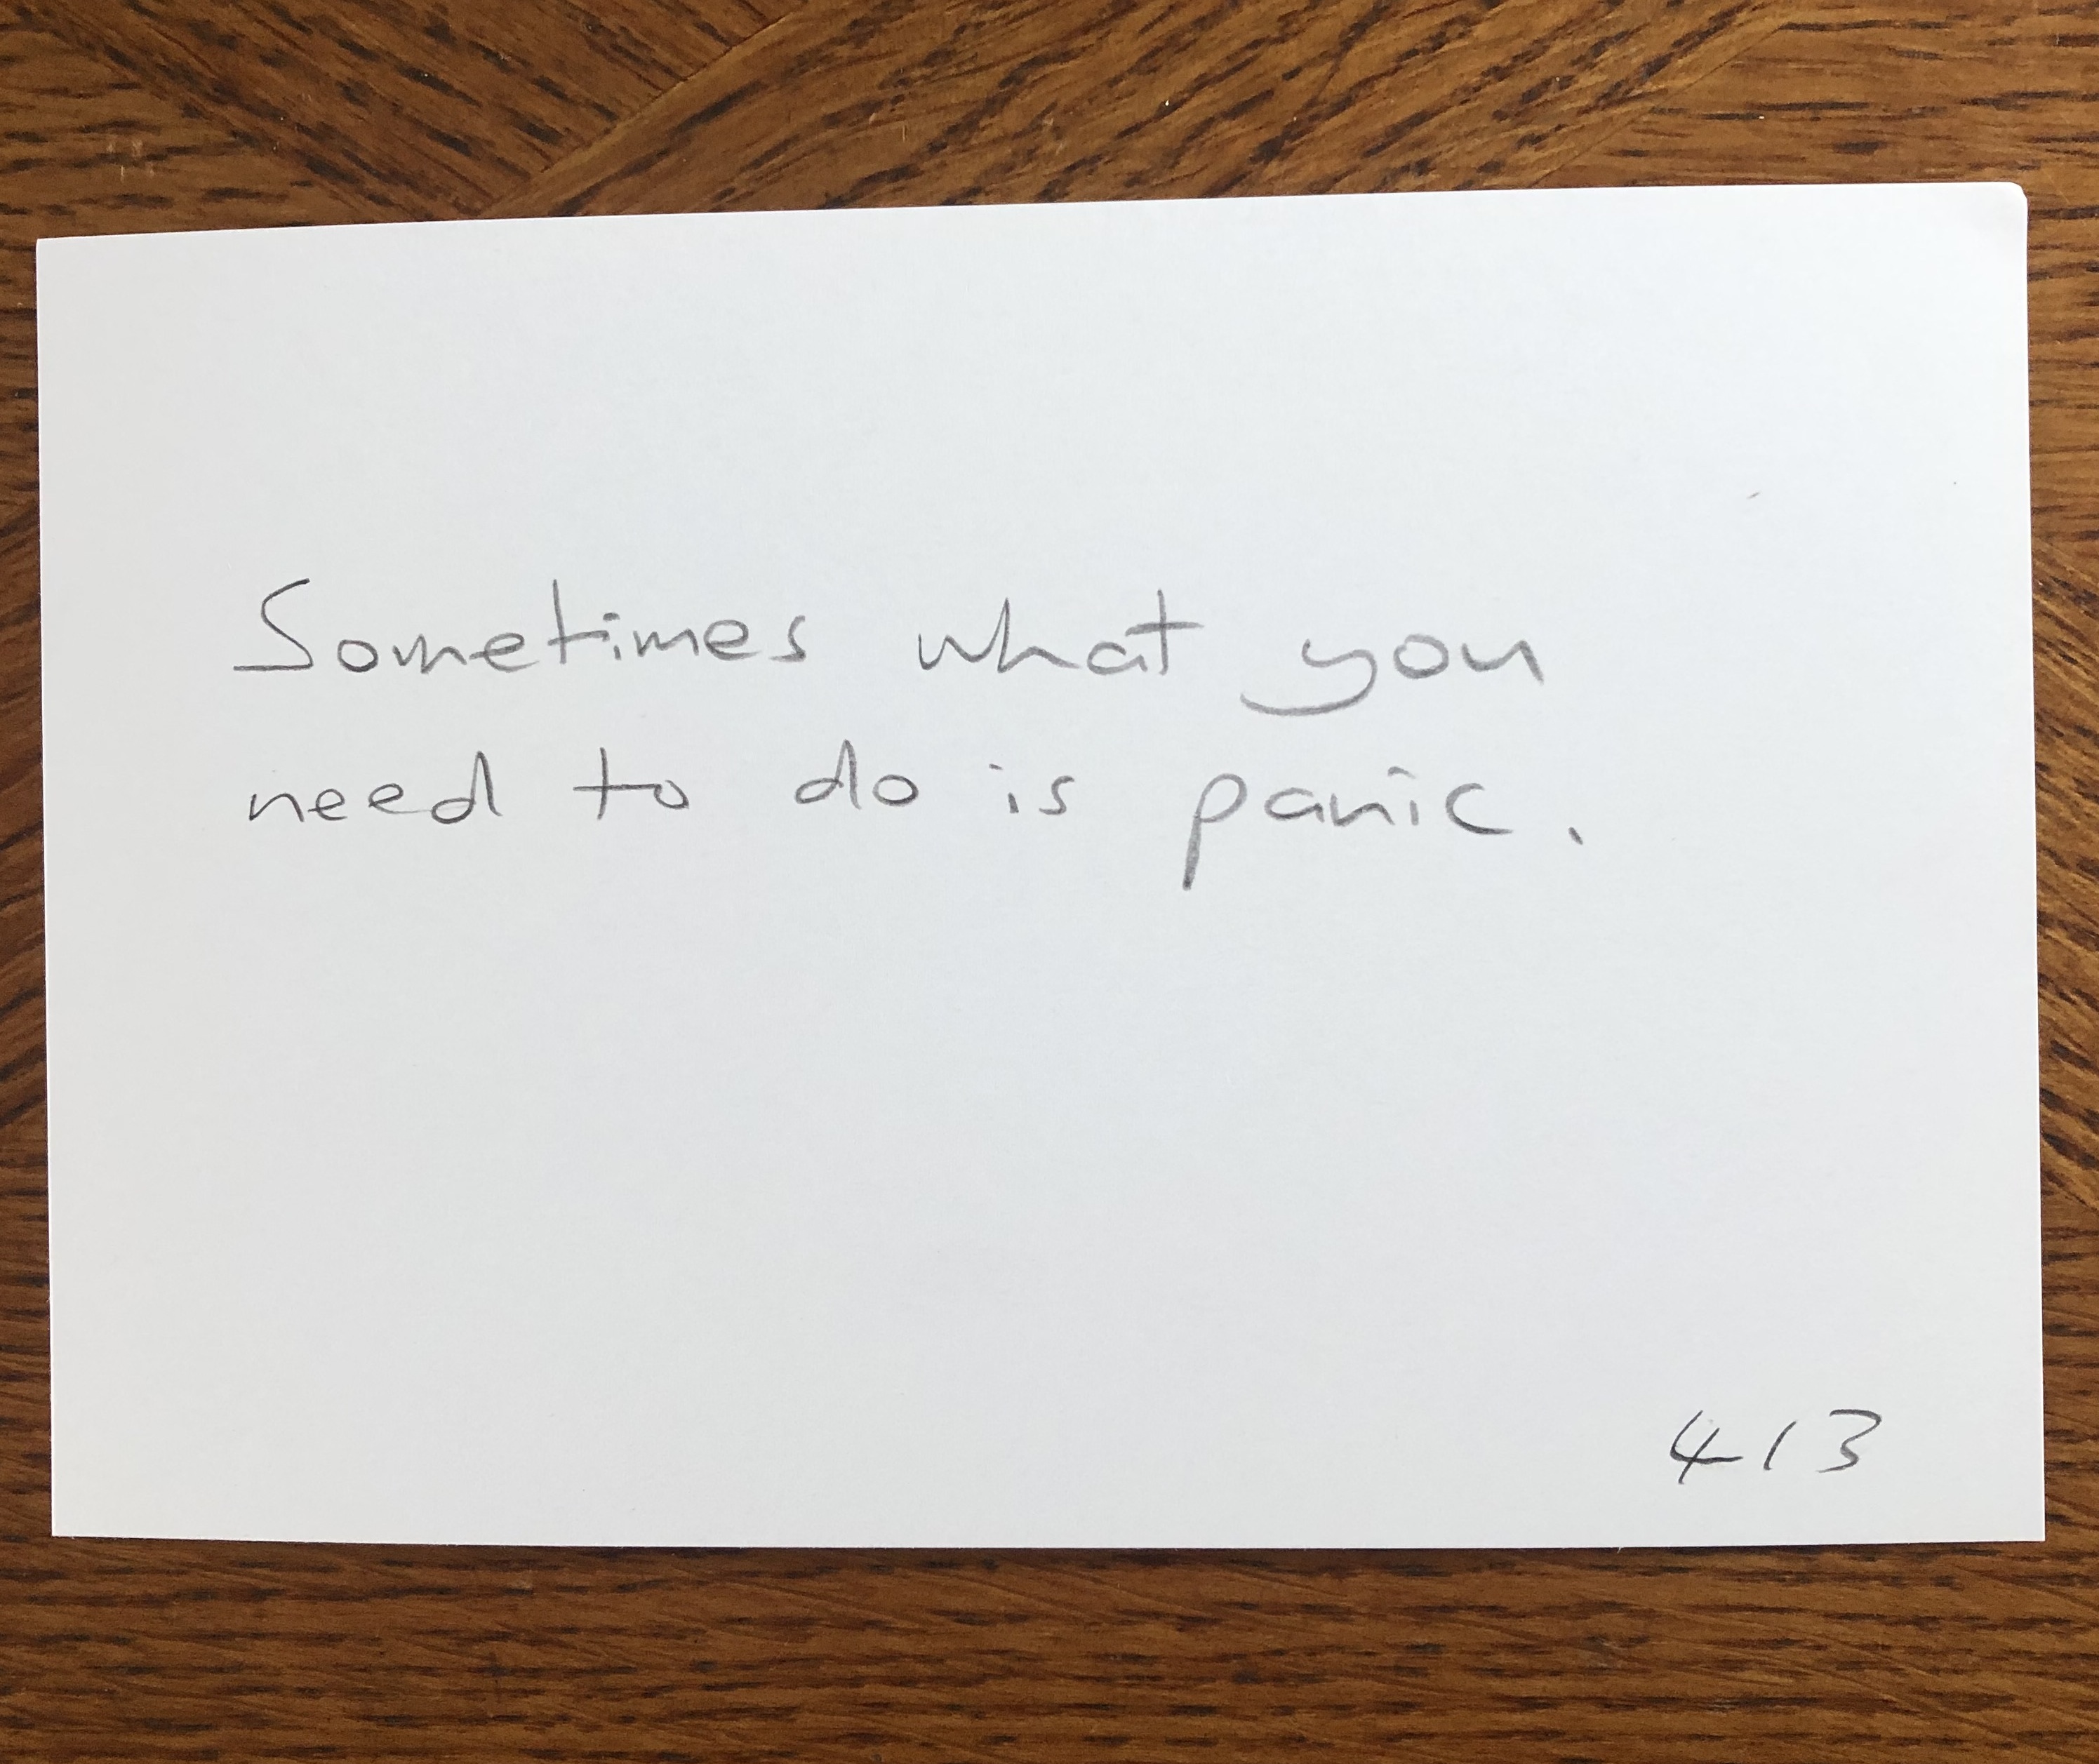 Sometimes what you
need to do is panic.
413